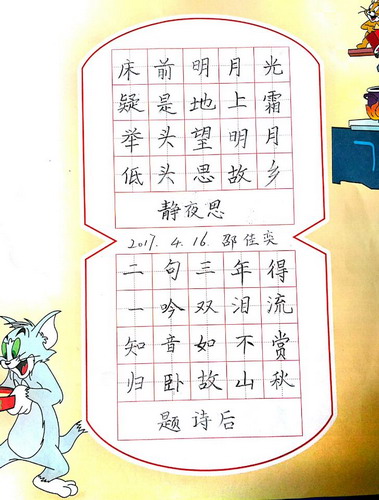 床前明月光
疑是地上霜
举头望明月
低头思故乡
静夜思
2017.4.16.邵佳奕
二句三年得
一吟双泪流
知音如不赏
归卧故山秋
题诗后